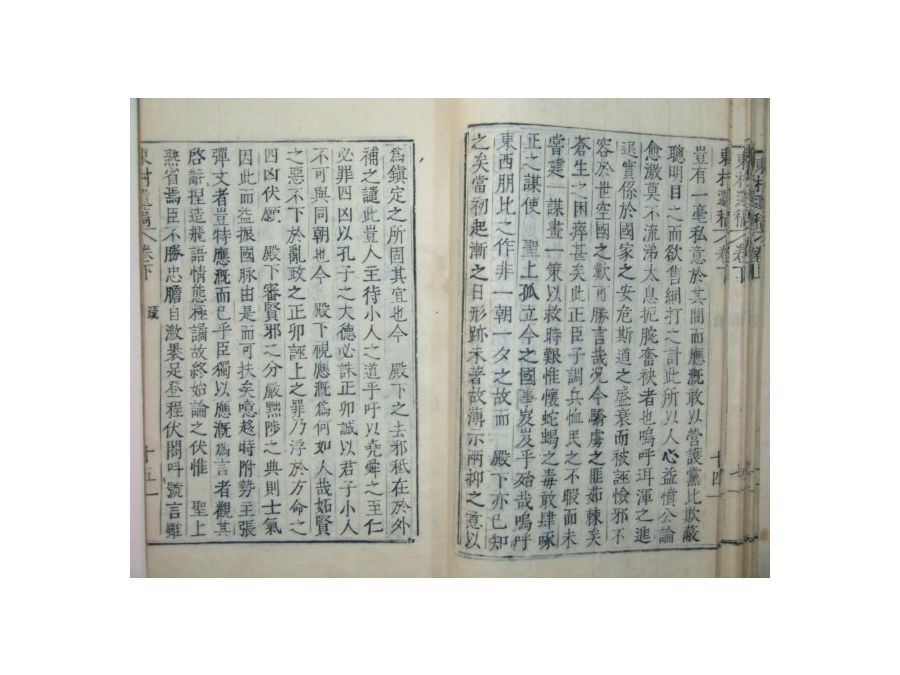 東村遺稿 卷上
東村遺稿 卷下
東村遺稿 卷下
十四
豈有一毫私意於其間而應漑敢以營護黨比欺蔽
聰明目之而欲售網打之計此所以人心益憤公論
愈激莫不流涕太息扼腕奮袂者也嗚呼珥渾之進
退實係於國家之安危斯道之盛衰而被誣憸邪不
容於世空國之歎可勝言哉況今驕虜之匪茹棘矣
蒼生之困瘁甚矣此正臣子調兵恤民之不暇而未
嘗建一謀畫一策以救時艱惟懷蛇蝎之毒敢肆啄
正之謀使 聖上孤立今之國勢岌岌乎殆哉嗚呼
東西朋比之作非一朝一夕之故而 殿下亦已知
之矣當初起漸之日形跡未著故薄示兩抑之意以
爲鎭定之所固其宜也今 殿下之去邪秪在於外
補之譴此豈人主待小人之道乎吁以堯舜之至仁
必罪四凶以孔子之大德必誅正卯誠以君子小人
不可與同朝也今 殿下視應漑爲何如人哉妬賢
之惡不下於亂政之正卯誣上之罪乃浮於方命之
四凶伏願 殿下審賢邪之分嚴黜陟之典則士氣
因此而益振國脉由是而可扶矣噫趍時附勢主張
彈文者豈特應漑而已乎臣獨以應漑爲言者觀其
啓辭捏造飛語情態極譎故終始論之伏惟 聖上
熟省焉臣不勝忠膽自激累足登程伏閤叫號言雖
東村遺稿 卷下 疏 十五